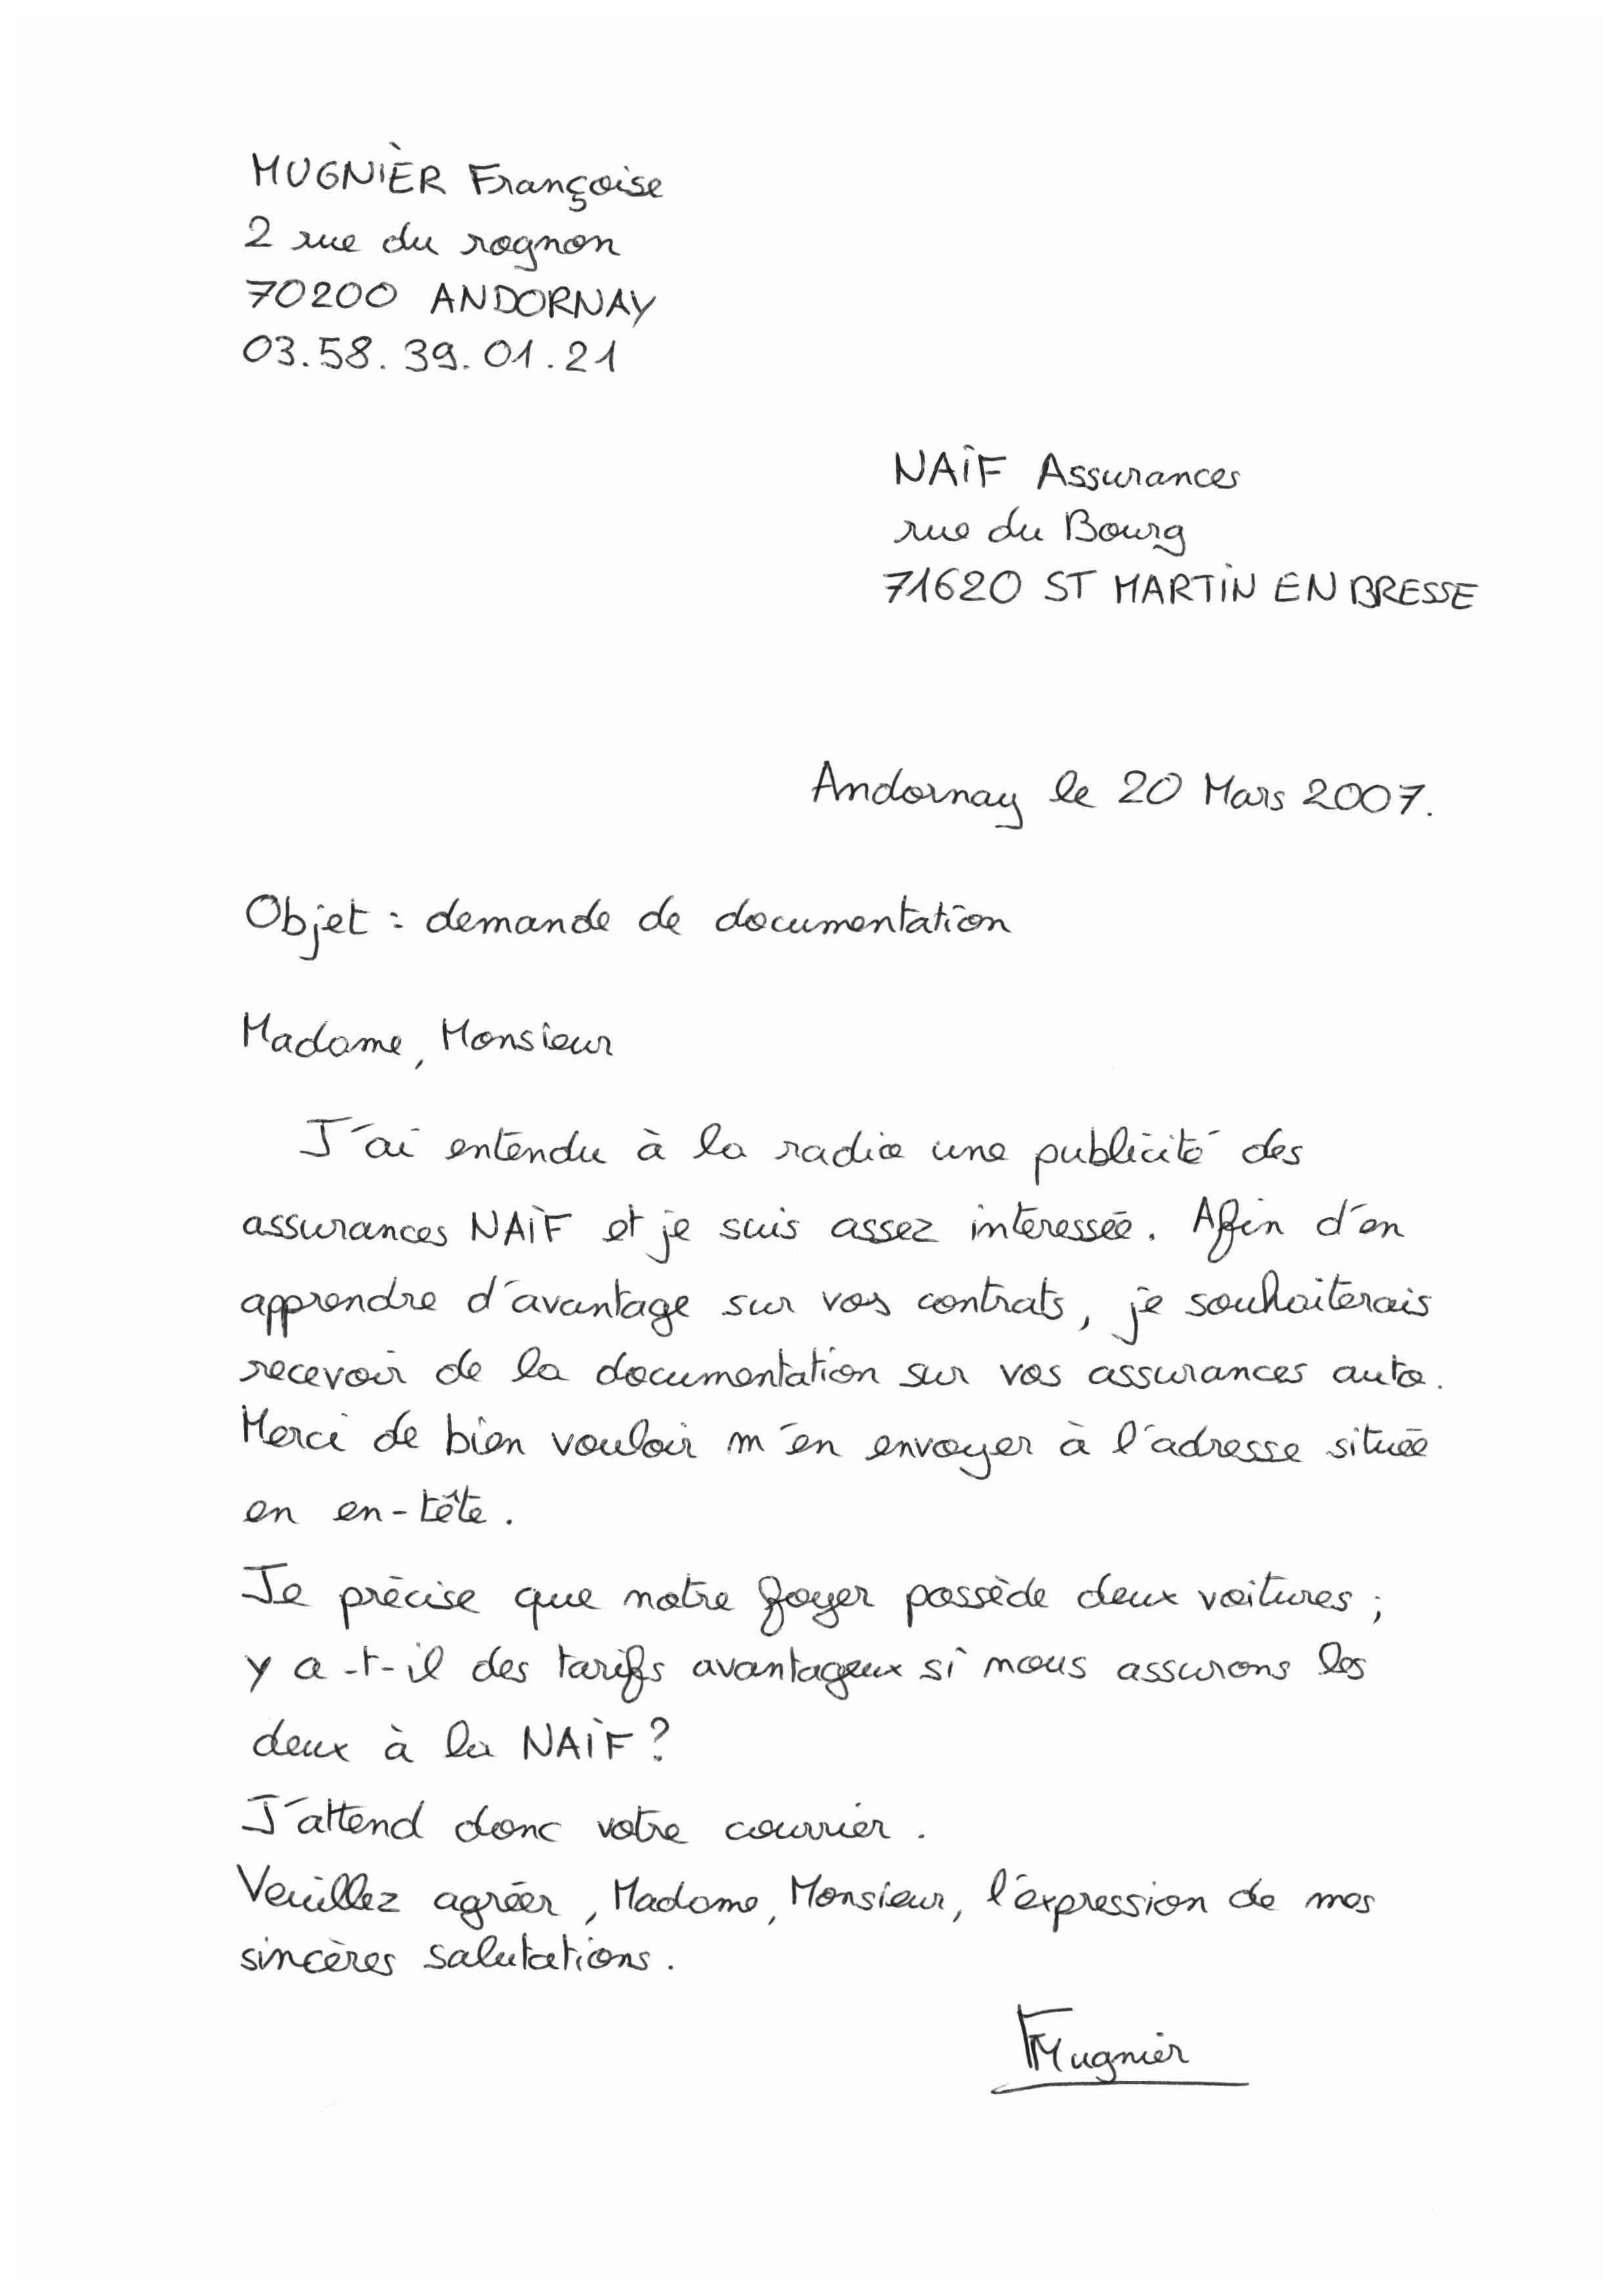 MUGNIÈR Françoise
2 rue du rognon
70200 ANDORNAY
03.58.39.01.21
NAÏF Assurances
rue du Bourg
71620 ST MARTIN EN BRESSE
Andornay le 20 Mars 2007.
Objet : demande de documentation
Madame, Monsieur
J'ai entendu à la radio une publicité des
assurances NAÏF et je suis assez intéressée. Afin d'en
apprendre d'avantage sur vos contrats, je souhaiterais
recevoir de la documentation sur vos assurances auto.
Merci de bien vouloir m'en envoyer à l'adresse située
en en-tête.
Je précise que notre foyer possède deux voitures ;
y a-t-il des tarifs avantageux si nous assurons les
deux à la NAÏF ?
J'attend donc votre courrier.
Veuillez agréer, Madame, Monsieur, l'expression de mes
sincères salutations.
FMugnier